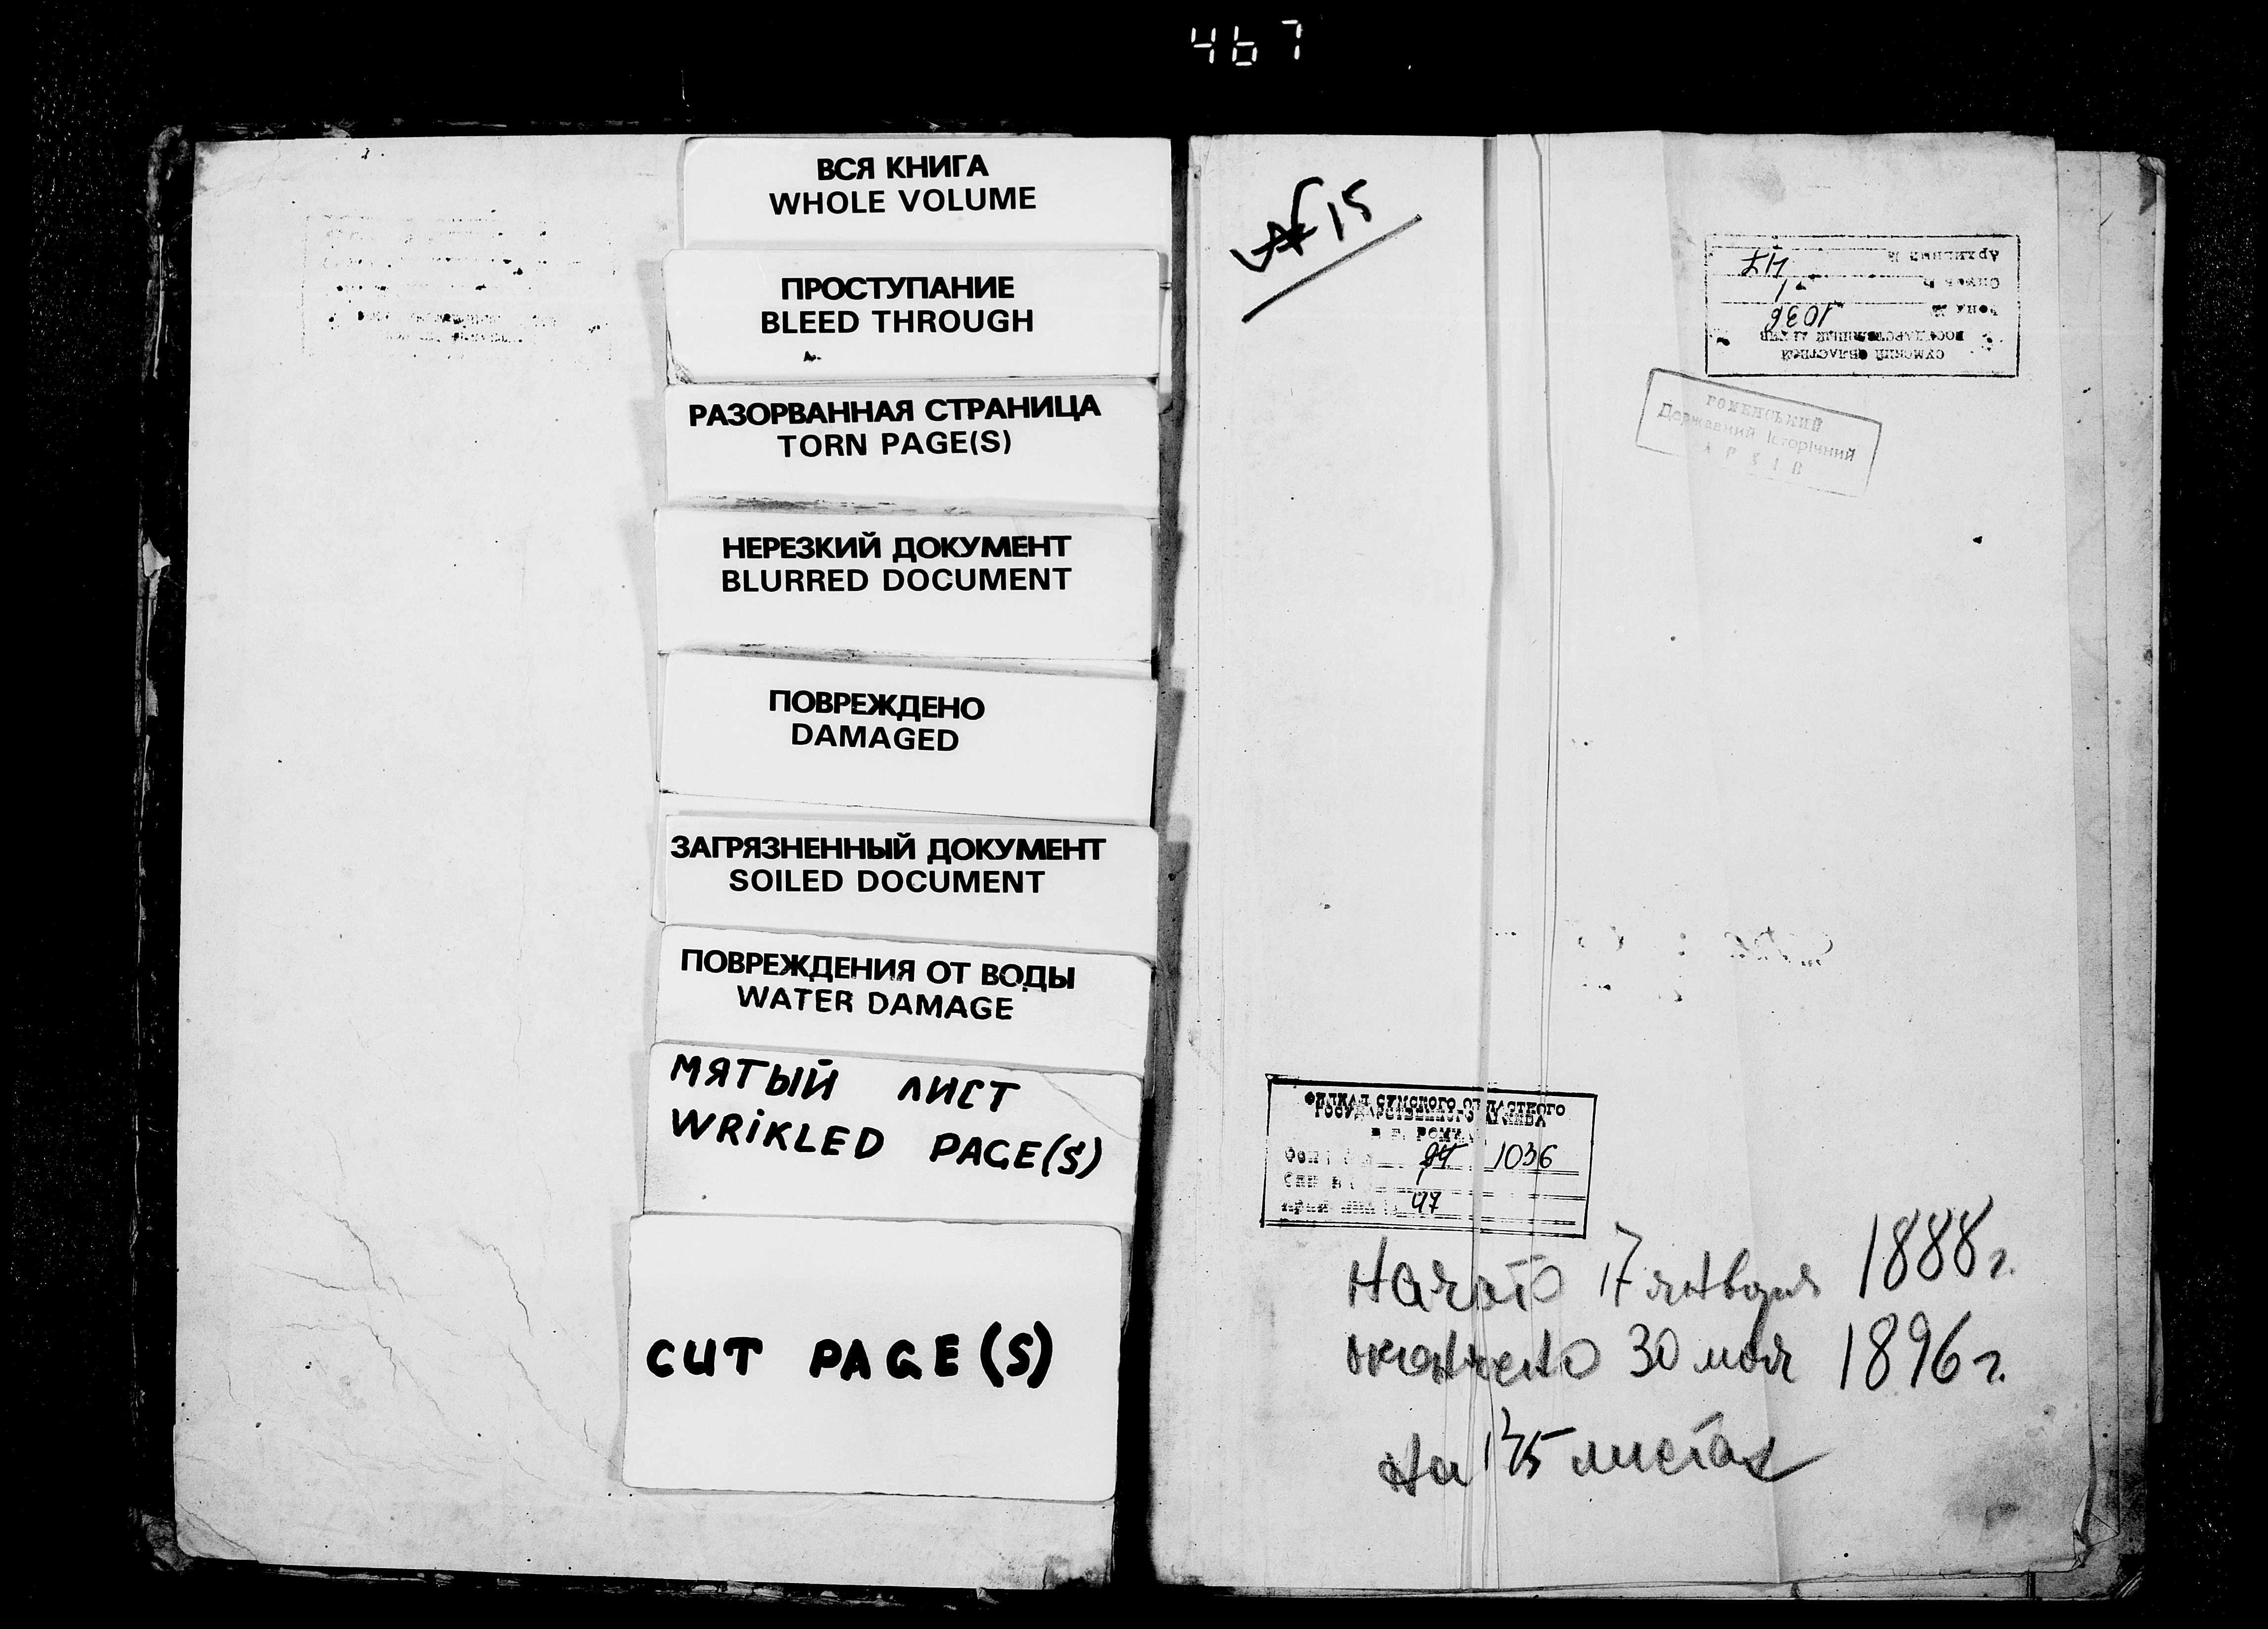 467
ВСЯ КНИГА
WHOLE VOLUME
ПРОСТУПАНИЕ
BLEED THROUGH
РАЗОРВАННАЯ СТРАНИЦА
TORN PAGE(S)
НЕРЕЗКИЙ ДОКУМЕНТ
BLURRED DOCUMENT
ПОВРЕЖДЕНО
DAMAGED
ЗАГРЯЗНЕННЫЙ ДОКУМЕНТ
SOILED DOCUMENT
ПОВРЕЖДЕНИЯ ОТ ВОДЫ
WATER DAMAGE
МЯТЫЙ ЛИСТ
WRiKLED PAGE(S)
CUT PAGE(S)
№15
СУМСКИЙ ОБЛАСТНОЙ
ГОСУДАРСТВЕННЫЙ АРХИВ
Фонд № 1036
Опись № 1
Архивный № 47
РОМЕНСЬКИЙ
Державний Історичний
АРХІВ
ФИЛИАЛ СУМСКОГО ОБЛАСТНОГО
ГОСУДАРСТВЕННОГО АРХИВА
В Г. РОМНЫ
1036
47
Начато 17 января 1888 г.
окончено 30 мая 1896 г.
на листах